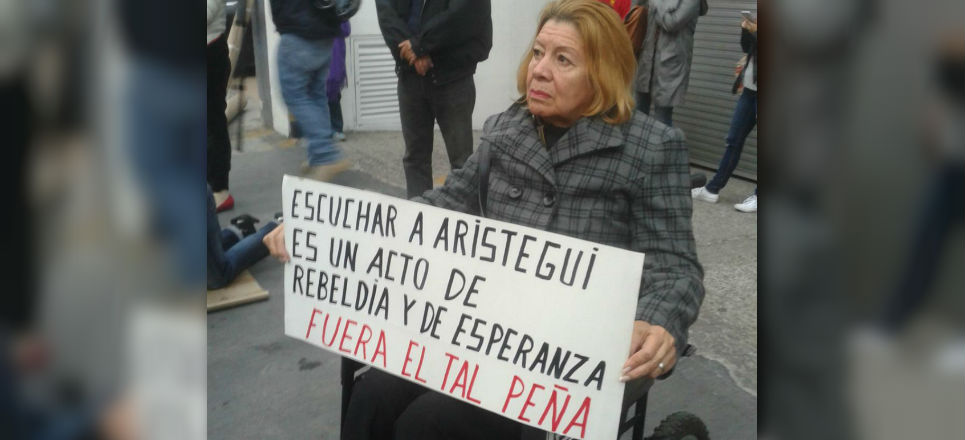 ESCUCHAR A ARISTEGUI
ES UN ACTO DE
REBELDIA Y DE ESPERANZA
FUERA EL TAL PEÑA